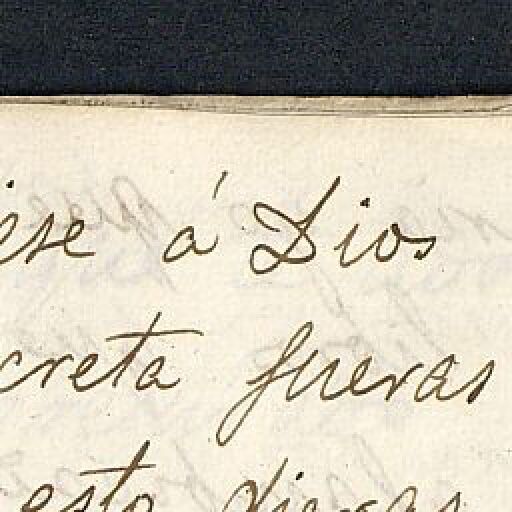 iese á Dios
creta fueras
esto dieras